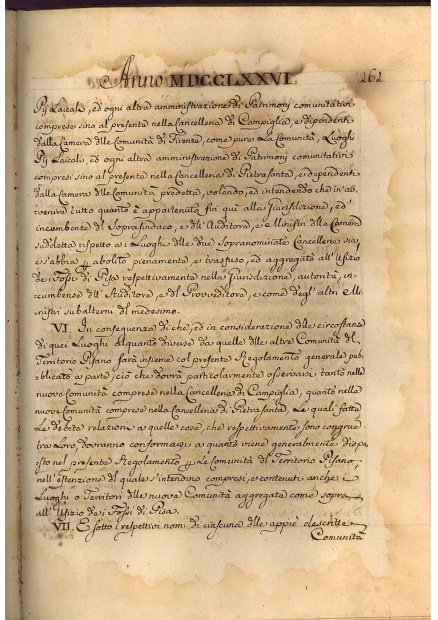 Anno MDCCLXXVI. 161
Pij Laicali, ed ogni altra amministrazione di Patrimonj comunitativi
compresi sino al presente nella Cancelleria di Campiglia, e dipendenti
dalla Camera dlle Comunità di Firenze, come pure La Comunità, Luoghi
Pij Laicali, ed ogni altra amministrazione di Patrimonj comunitativi
compresi sino al presente nella Cancelleria di Pietrasanta, e dependenti
dalla Camera dlle Comunità predetta, volendo, ed intendendo che in av-
venire tutto quanto è appartenuto fin quì alla Giurisdizione, ed i'
incumbenze del Soprasindaco, e dll' Auditore, e Ministri dlla Camera
suddetta rispetto a i Luoghi delle due Soprannominate Cancellerie sia,
e s'abbia p abolito pienamente, e trasfuso, ed aggregato all' Ufizio
de i Fossi di Pisa respettivamente nella Giurisdizione, autorità, in-
cumbenze dll' Auditore, e dl Provveditore, e come degl' altri Mi-
nistri subalterni dl medesimo.
VI. In conseguenza di che, ed in considerazione dlle circostanze
di quei Luoghi alquanto diverse da quelle dlle altre Comunità dl
Territorio Pisano farà insieme col presente Regolamento generale pub-
blicato a parte, ciò che dovrà particolarmente osservarsi tanto nelle
nuove Comunità comprese nella Cancelleria di Campiglia, quanto nelle
nuove Comunità comprese nella Cancelleria di Pietrasanta, Le quali fatte
Le debite relazioni a quelle cose, che respettivamente sono congrue
tra Loro, dovranno conformarsi a quanto viene generalmente dispo-
sto nel presente Regolamento p Le Comunità dl Territorio Pisano,
nell' estenzione dl quale s' intendino compresi, e contenuti anche i
Luoghi, o Territori dlle nuove Comunità aggregate come sopra
all' Ufizio de i Fossi di Pisa.
VII. E sotto i respettivi nomi di ciascuna dlle appiè descritte
Comunità